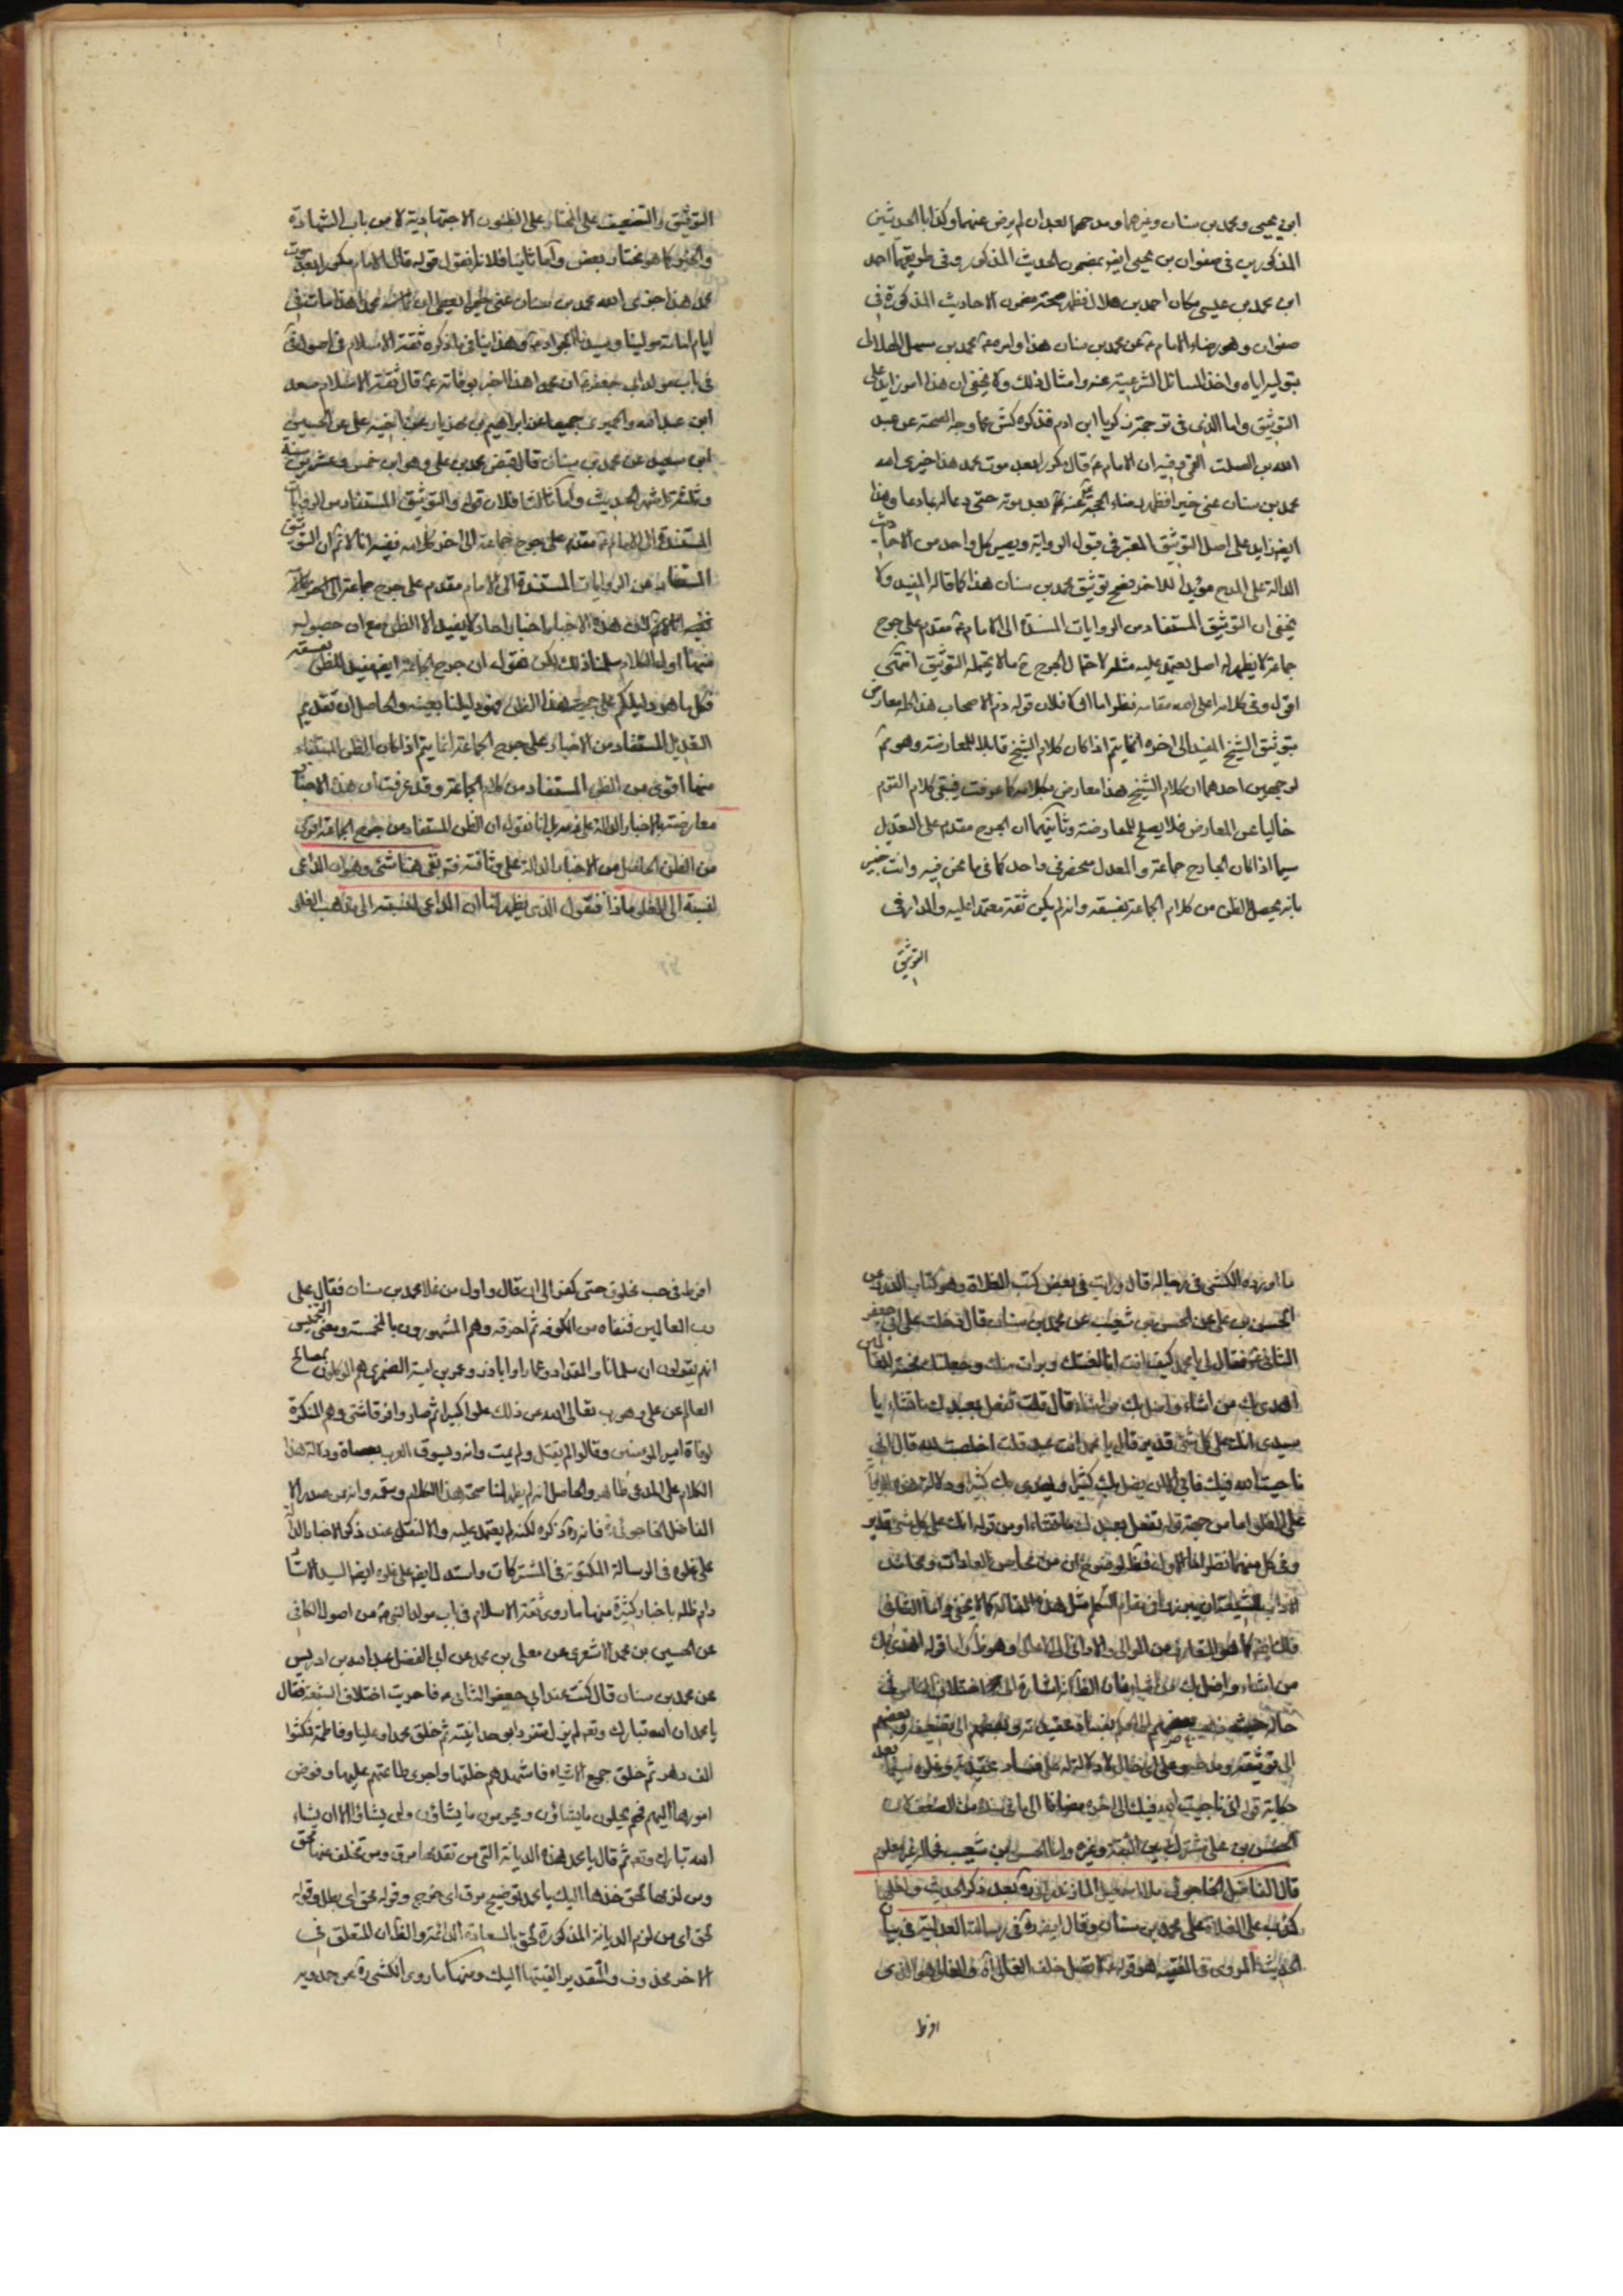 ابن يحيى ومحمد بن سنان وغيرهما ومدحهما بعد ان لم يرض عنهما وكذا بالحديثين
المذكورين في صفوان بن يحيى ايضر بمضمون الحديث المذكور وفي طريقهما احمد
ابن محمد بن عيسى مكان احمد بن هلال فظهر صحة مضمون الاحاديث المذكورة في
صفوان وهو رضاء الامام ع عن محمد بن سنان هذا وامره ع محمد بن سهل
بتوليه اياه واخذ المسائل الشرعية عنه وامثال ذلك ولا يخفى ان هذا امور زايد على
التوثيق واما الذي في ترجمة زكريا ابن ادم فذكره كش عما وجد الصحة عن عبد
الله بن الصلت القمي فيه ان الامام ع قال مكررا بعد موت محمد هذا جزى الله
محمد بن سنان عني خيرا فظهر رضاء الحجة عنه بعد موته حتى دعا له بما دعا وهذا
ايضر زايد على اصل التوثيق المعتبر في قبول الرواية ويصير كل واحد من الاحاديث
الدالة على المدح مؤيدا للاخر فصح توثيق محمد بن سنان هذا كما قاله المفيد ولا
يخفى ان التوثيق المستفاد من الروايات المسندة الى الامام ع مقدم على جرح
جماعة لا يظهر له اصل يعتمد عليه مثله لاحتمال الجرح ما لا يحتمله التوثيق انتهى
اقول وفي كلامه اعلى الله مقامه نظر اما اولا فلان قوله ذم الاصحاب هذا له معارض
بتوثيق الشيخ المفيد الى اخره انما يتم اذا كان كلام الشيخ قابلا للمعارضة وهو ثم
لوجهين احدهما ان كلام الشيخ هذا معارض بكلامه كما عرفت فيبقى كلام القوم
خاليا عن المعارض فلا يصلح للمعارضة وثانيهما ان الجرح مقدم على التعديل
سيما اذا كان الجارح جماعة والمعدل منحصر في واحد كما في ما نحن فيه وانت خبير
بانه يحصل الظن من كلام الجماعة بفسقه وانه لم يكن ثقة معتمدا عليه والمدار في
التوثيق
التوثيق والتضعيف على المختار على الظنون الاجتهادية لا من باب الشهادة
والخبر كما هو مختار بعض واما ثانيا فلانا نقول قوله قال الامام مكررا بعد موت
محمد هذا جزى الله محمد بن سنان عني خيرا يعطي ان محمدا هذا مات في
ايام امامة مولينا وسيدنا الجواد ع وهذا ينافي ما ذكره ثقة الاسلام في اصوله
في باب مولد ابي جعفر ع ان محمدا هذا اخبر بوفاته ع قال ثقة الاسلام سعد
ابن عبد الله والحميري جميعا عن ابراهيم بن مهزيار عن اخيه علي عن الحسين
ابن سعيد عن محمد بن سنان قال قبض محمد بن علي وهو ابن خمس وعشرين سنة
وثلثة اشهر الحديث واما ثالثا فلان قوله والتوثيق المستفاد من الروايات
المستندة الى الامام ع مقدم على جرح جماعة الى اخر كلامه ففيه انا لا ثم ان التوثيق
المستفاد من الروايات المستندة الى الامام مقدم على جرح جماعة الى اخر كلامه
هذه الاخبار اخبار احاد لا يفيد الا الظن مع ان حصوله
منها اول الكلام سلمنا ذلك لكن نقول ان جرح الجماعة ايضر مفيد للظن بفسقه
فكل ما هو دليلكم على حجية هذا الظن فهو دليلنا بعينه والحاصل ان تقديم
التعديل المستفاد من الاخبار على جرح الجماعة انما يتم اذا كان الظن المستفاد
منها اقوى من الظن المستفاد من كلام الجماعة وقد عرفت ان هذه الاخبار
معارضة بالاخبار الدالة على بل انا نقول ان الظن المستفاد من جرح الجماعة اقوى
من الظن الحاصل من الاخبار الدالة على وثاقته فتدبر بقى هنا شئ وهو ان الداعي
لنسبته الى الغلو ماذا فنقول الذي يظهر لنا ان الداعي لنسبته الى مذهب الغلو
ما اورده الكشي في رجاله قال ورايت في بعض كتب الغلاة وهو كتاب الدور عن
الحسن بن علي عن الحسن بن شعيب عن محمد بن سنان قال دخلت على ابي جعفر
الثاني ع فقال لي يا محمد كيف انت اذا لعنتك وبرات منك وجعلتك محنة للعالمين
اهدي بك من اشاء واضل بك من اشاء قال قلت تفعل بعبدك ما تشاء يا
سيدي انك على كل شئ قدير ثم قال يا محمد انت عبد قد اخلصت لله قال اني
ناجيت الله فيك فابى الا ان يضل بك كثيرا ويهدي بك كثيرا ودلالة هذه الرواية
على الغلو اما من جهة قوله تفعل بعبدك ما تشاء او من قوله انك على كل شئ قدير
وفي كل منهما نظر اما الاول فظ لوضوح ان من محاسن العادات ومحامد
من اشاء واضل بك من اشاء فان الظ انه اشارة الى اختلاف الناس في
حاله حيث ذهب بعضهم الى الحكم بفساد عقيدته وبعضهم الى تضعيفه وبعضهم
الى توثيقه ومدحه وعلى اي حال لا دلالة له على فساد عقيدته وغلوه سيما بعد
حكاية قوله اني ناجيت الله فيك الى اخره مضافا الى ما في سنده من الضعف لان
الحسن بن علي مشترك بين الثقة وغيره واما الحسن بن شعيب فحاله غير معلوم
قال الفاضل الخاجوئي ملا اسمعيل المازندراني ره بعد ذكر الحديث واظن
كذب على الغلاة على محمد بن سنان وقال ايضر في رسالته العدالة في بيان
الحديث المروي في الفقيه هو قوله ع لا تصل خلف الغالي اه والغالي هو الذي
افرط
افرط في حب مخلوق حتى كفر الى ان قال واول من غلا محمد بن سنان فقال علي
رب العالمين فنفاه من الكوفه ثم احرقه وهم المشهورون بالمخمسة ومعنى التخميس
انهم يقولون ان سلمانا والمقداد وعمارا وابا ذر وعمرو بن امية الضمري هم الموكلون بمصالح
العالم عن علي وهو رب تعالى الله عن ذلك علوا كبيرا ثم صاروا فرقا شتى وهم المنكرة
لوفاة امير المؤمنين وقالوا لم يقتل ولم يمت وانه ويسوق العرب بعصاه ودلالة هذا
الكلام على المدعى ظاهر والحاصل انه لم يظهر لنا صحة هذا الكلام وسقمه وانه عن صدر الا
الفاضل الخاجوئي ره فانه ره ذكره لكنه لم يعتمد عليه والا لنقله عند ذكر الاخبار الدالة
على غلوه في الرسالة المكتوبة في المشتركات واستدل ايضر على غلوه ايضر السيد الاستاد
دام ظله باخبار كثيرة منها ما روى ثقة الاسلام في باب مولد النبي ص من اصول الكافي
عن الحسين بن محمد الاشعري عن معلى بن محمد عن ابي الفضل عبد الله بن ادريس
عن محمد بن سنان قال كنت عند ابي جعفر الثاني ع فاجريت اختلاف الشيعة فقال
يا محمد ان الله تبارك وتعالى لم يزل متفردا بوحدانيته ثم خلق محمدا وعليا وفاطمة فمكثوا
الف دهر ثم خلق جميع الاشياء فاشهدهم خلقها واجرى طاعتهم عليها وفوض
امورها اليهم فهم يحلون ما يشاؤن ويحرمون ما يشاؤن ولن يشاؤا الا ان يشاء
الله تبارك وتعالى ثم قال يا محمد هذه الديانة التي من تقدمها مرق ومن تخلف عنها محق
ومن لزمها لحق خذها اليك يا محمد توضيح مرق اي خرج وقوله محق اي بطل وقوله
لحق اي من لزم الديانة المذكورة لحق بالسعادة الدائمة والظ ان المتعلق في
الاخر محذوف والتقدير القيتها اليك ومنها ما روى الكشي ره عن حمدويه